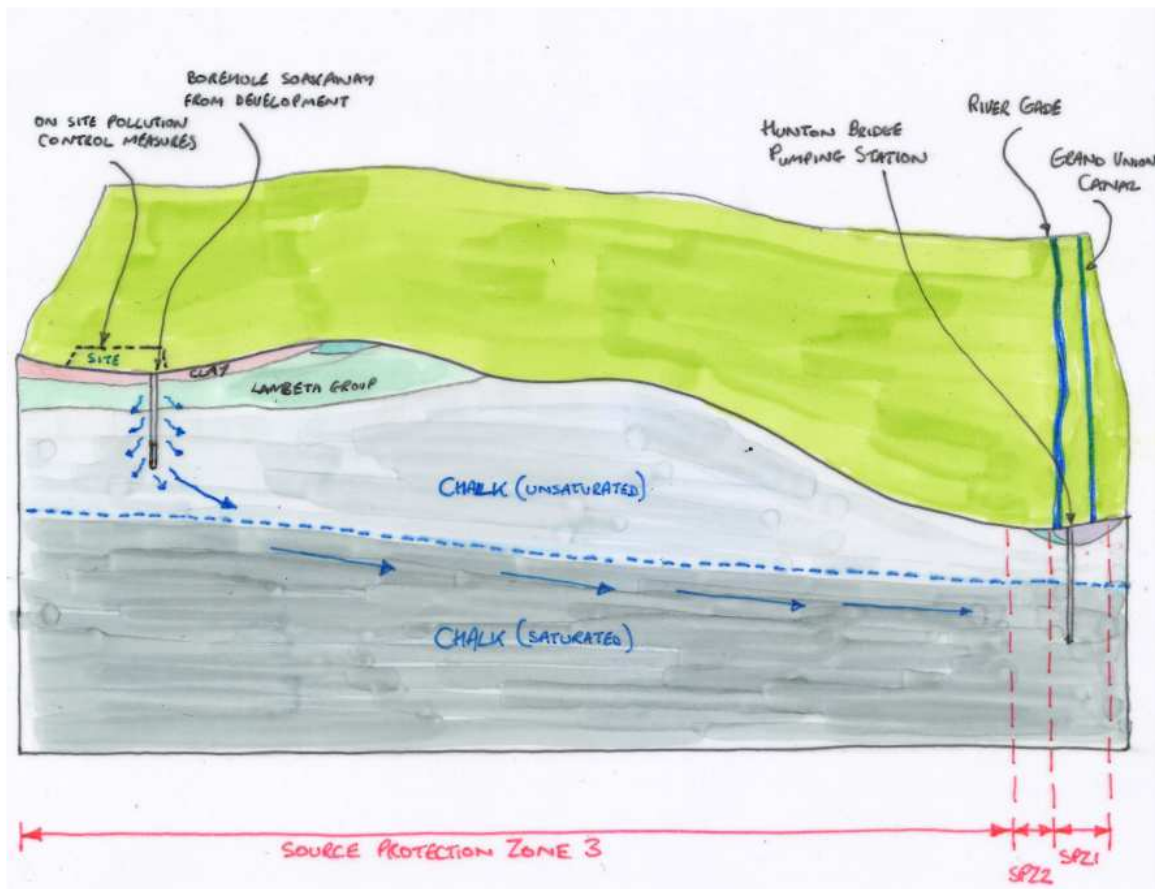 BOREHOLE SOAKAWAY
FROM DEVELOPMENT
ON SITE POLLUTION
CONTROL MEASURES
RIVER GADE
HUNTON BRIDGE
PUMPING STATION
GRAND UNION
CANAL
SITE
CLAY
LAMBETH GROUP
CHALK (UNSATURATED)
CHALK (SATURATED)
SOURCE PROTECTION ZONE 3
SPZ2
SPZ1